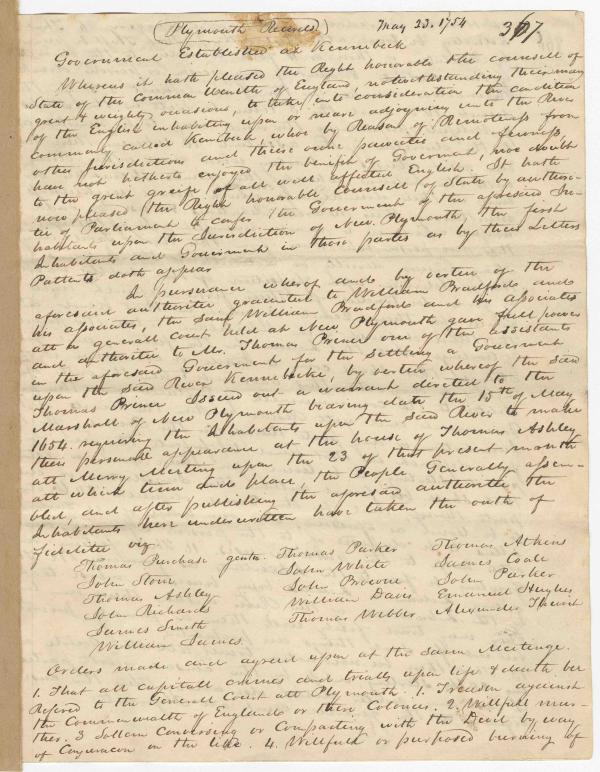 (Plymouth Records) May 23. 1754 367
Government Established at Kennebeck
Whereas it hath pleased the Right honorable the counsell of
State of the Common Wealth of England, notwithstanding their many
great & weighty occasions, to take into consideration the condition
of the English inhabiting upon or near adjoyning unto the River
commonly called Kenibeck, who by Reason of Remoteness from
other Jurisdictions and theire owne paucities and fewness,
have not hitherto enjoyed the benifit of Goverment, noe doubt
to the great greife of all well affected English. It hath
now pleased the Right honorable Counsell of State by authori-
tie of Parliament to confer the Goverment of the aforesaid In-
habitants upon the Jurisdiction of New Plymouth, the first
Inhabitants and Goverment in those partes as by their Letters
Pattents doth appear
In pursuance wherof and by vertue of the
aforesaid authoritie graunted to William Bradford and
his assosiates, the said William Bradford and his assosiates
att a generall Court held at New Plymouth gave full power
and authoritie to Mr. Thomas Prence one of the assistants
in the aforesaid Goverment for the settling a Goverment
upon the said River Kennebecke, by vertue whereof the said
Thomas Prince issued out a warrant directed to the
Marshall of New Plymouth bearing date the 15th of May
1654. requiring the Inhabitants upon the said River to make
their personal appearance at the house of Thomas Ashley
att Merry Meeting upon the 23 of that present month
att which time and place, the People Generally assem-
bled, and after publishing the aforesaid authoritie the
Inhabitants here underwritten have taken the oath of
fidelitie viz
Thomas Purchase gentn Thomas Parker Thomas Atkins
John Stone John White James Coale
Thomas Ashley John Procore John Parker
John Richards William Davis Emanuel Hughes
James Smith Thomas Webber Alexander
William James
Orders made and agreed upon at the said Meetinge.
1. That all capitall crimes and trialls upon life & death be
Refered to the General Court att Plymouth. 1. Treason against
the Commonwealth of England or these Colonies. 2. Willfull mur-
ther. 3 Sollem Conversing or Compacting with the Devil by way
of Conjuracon or the like. 4. Willfull or purposed burning of